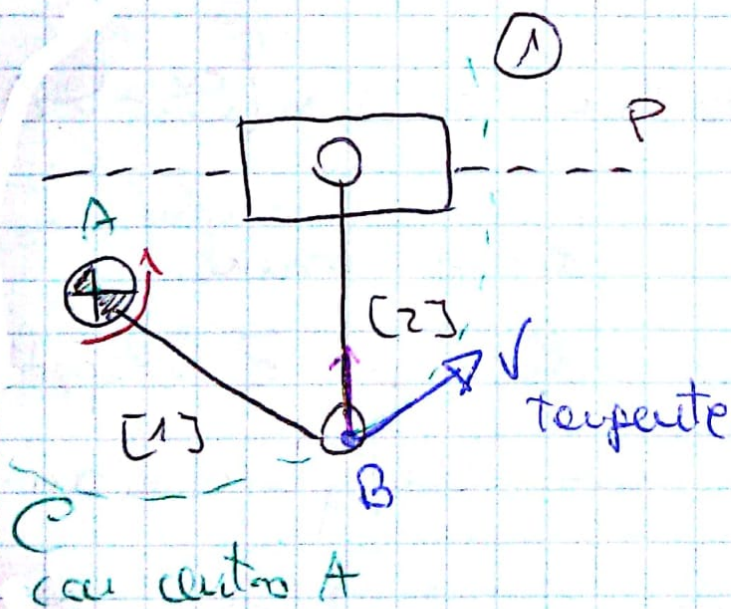 1
P
A
[2]
V
tangente
[1]
B
C
con centro A